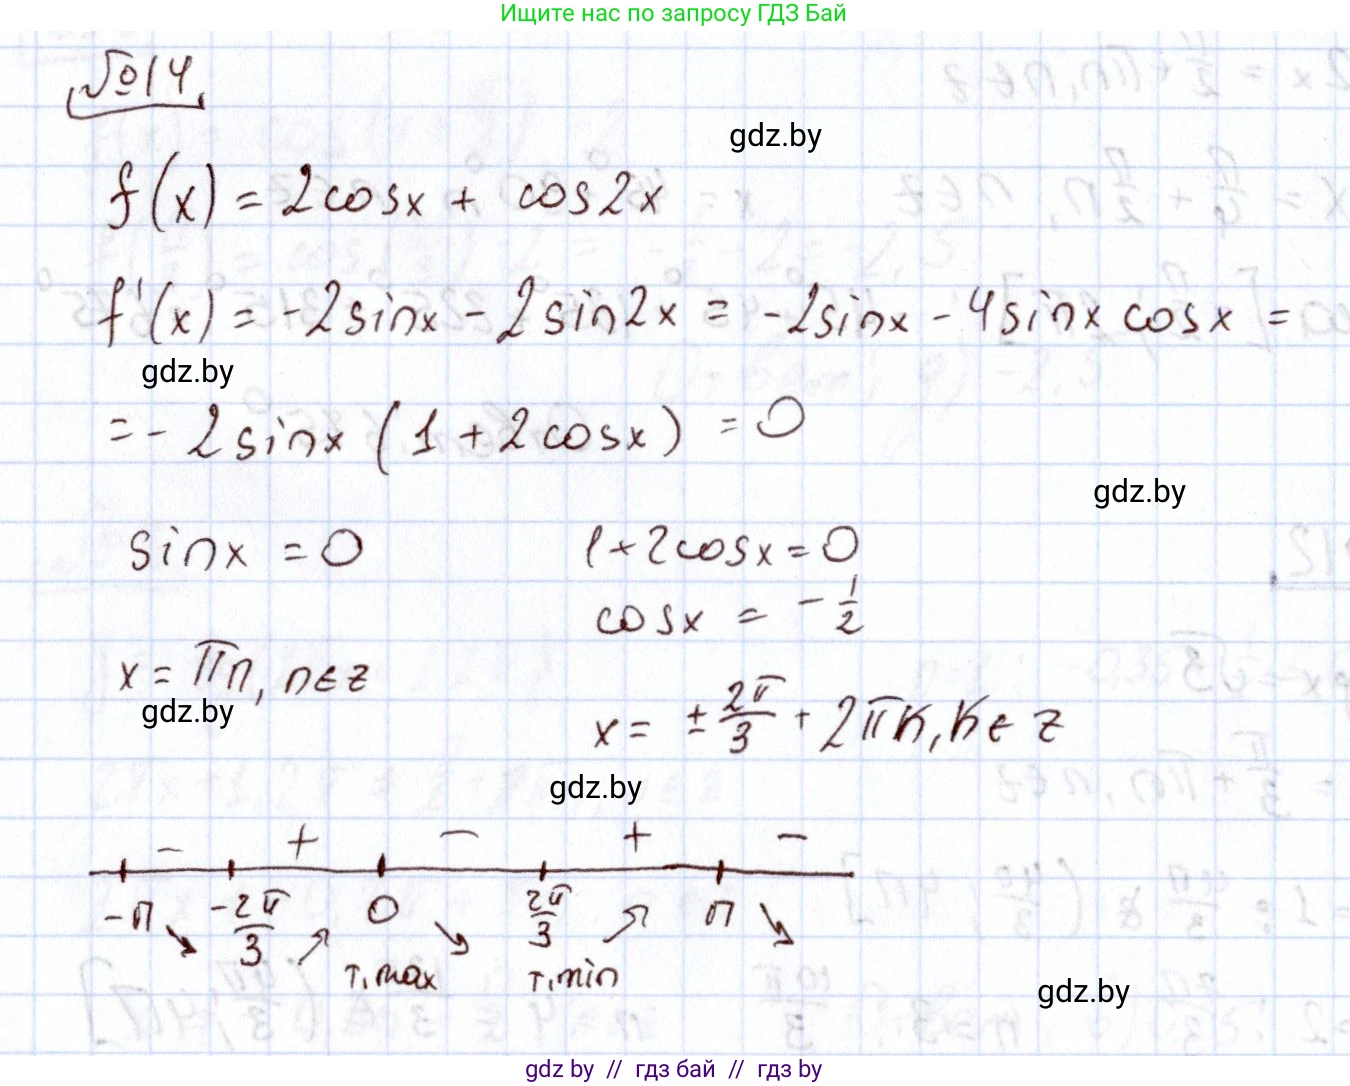 Ищите нас по запросу ГДЗ Бай
№14
gdz.by
f(x) = 2cosx + cos2x
f'(x) = -2sinx - 2sin2x = -2sinx - 4sinx cosx =
gdz.by
= - 2sinx (1 + 2cosx) = 0
gdz.by
sinx = 0 1+2cosx = 0
cosx = - 1/2
x = πn, n∈z
gdz.by
x = ± 2π/3 + 2πk, k∈z
gdz.by
- + - + -
-π -2π/3 0 2π/3 π
т.max т.min
gdz.by
gdz by // гдз бай // гдз by